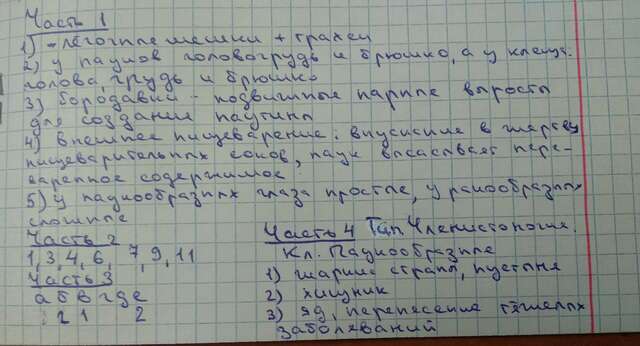 Часть 1
1) - лёгочные мешки + трахеи
2) у пауков головогрудь и брюшко, а у клеща:
голова, грудь и брюшко
3) бородавки - подвижные парные выросты
для создания паутины
4) внешнее пищеварение: впускание в жертву
пищеварительных соков, паук высасывает пере-
варенное содержимое
5) у паукообразных глаза простые, у ракообразных
сложные
Часть 2
1, 3, 4, 6, 7, 9, 11
Часть 3
а б в г д е
2 1 2
Часть 4 Тип. Членистоногие.
Кл. Паукообразные
1) жаркие страны, пустыня
2) хищник
3) яд, перенесение тяжелых
заболеваний